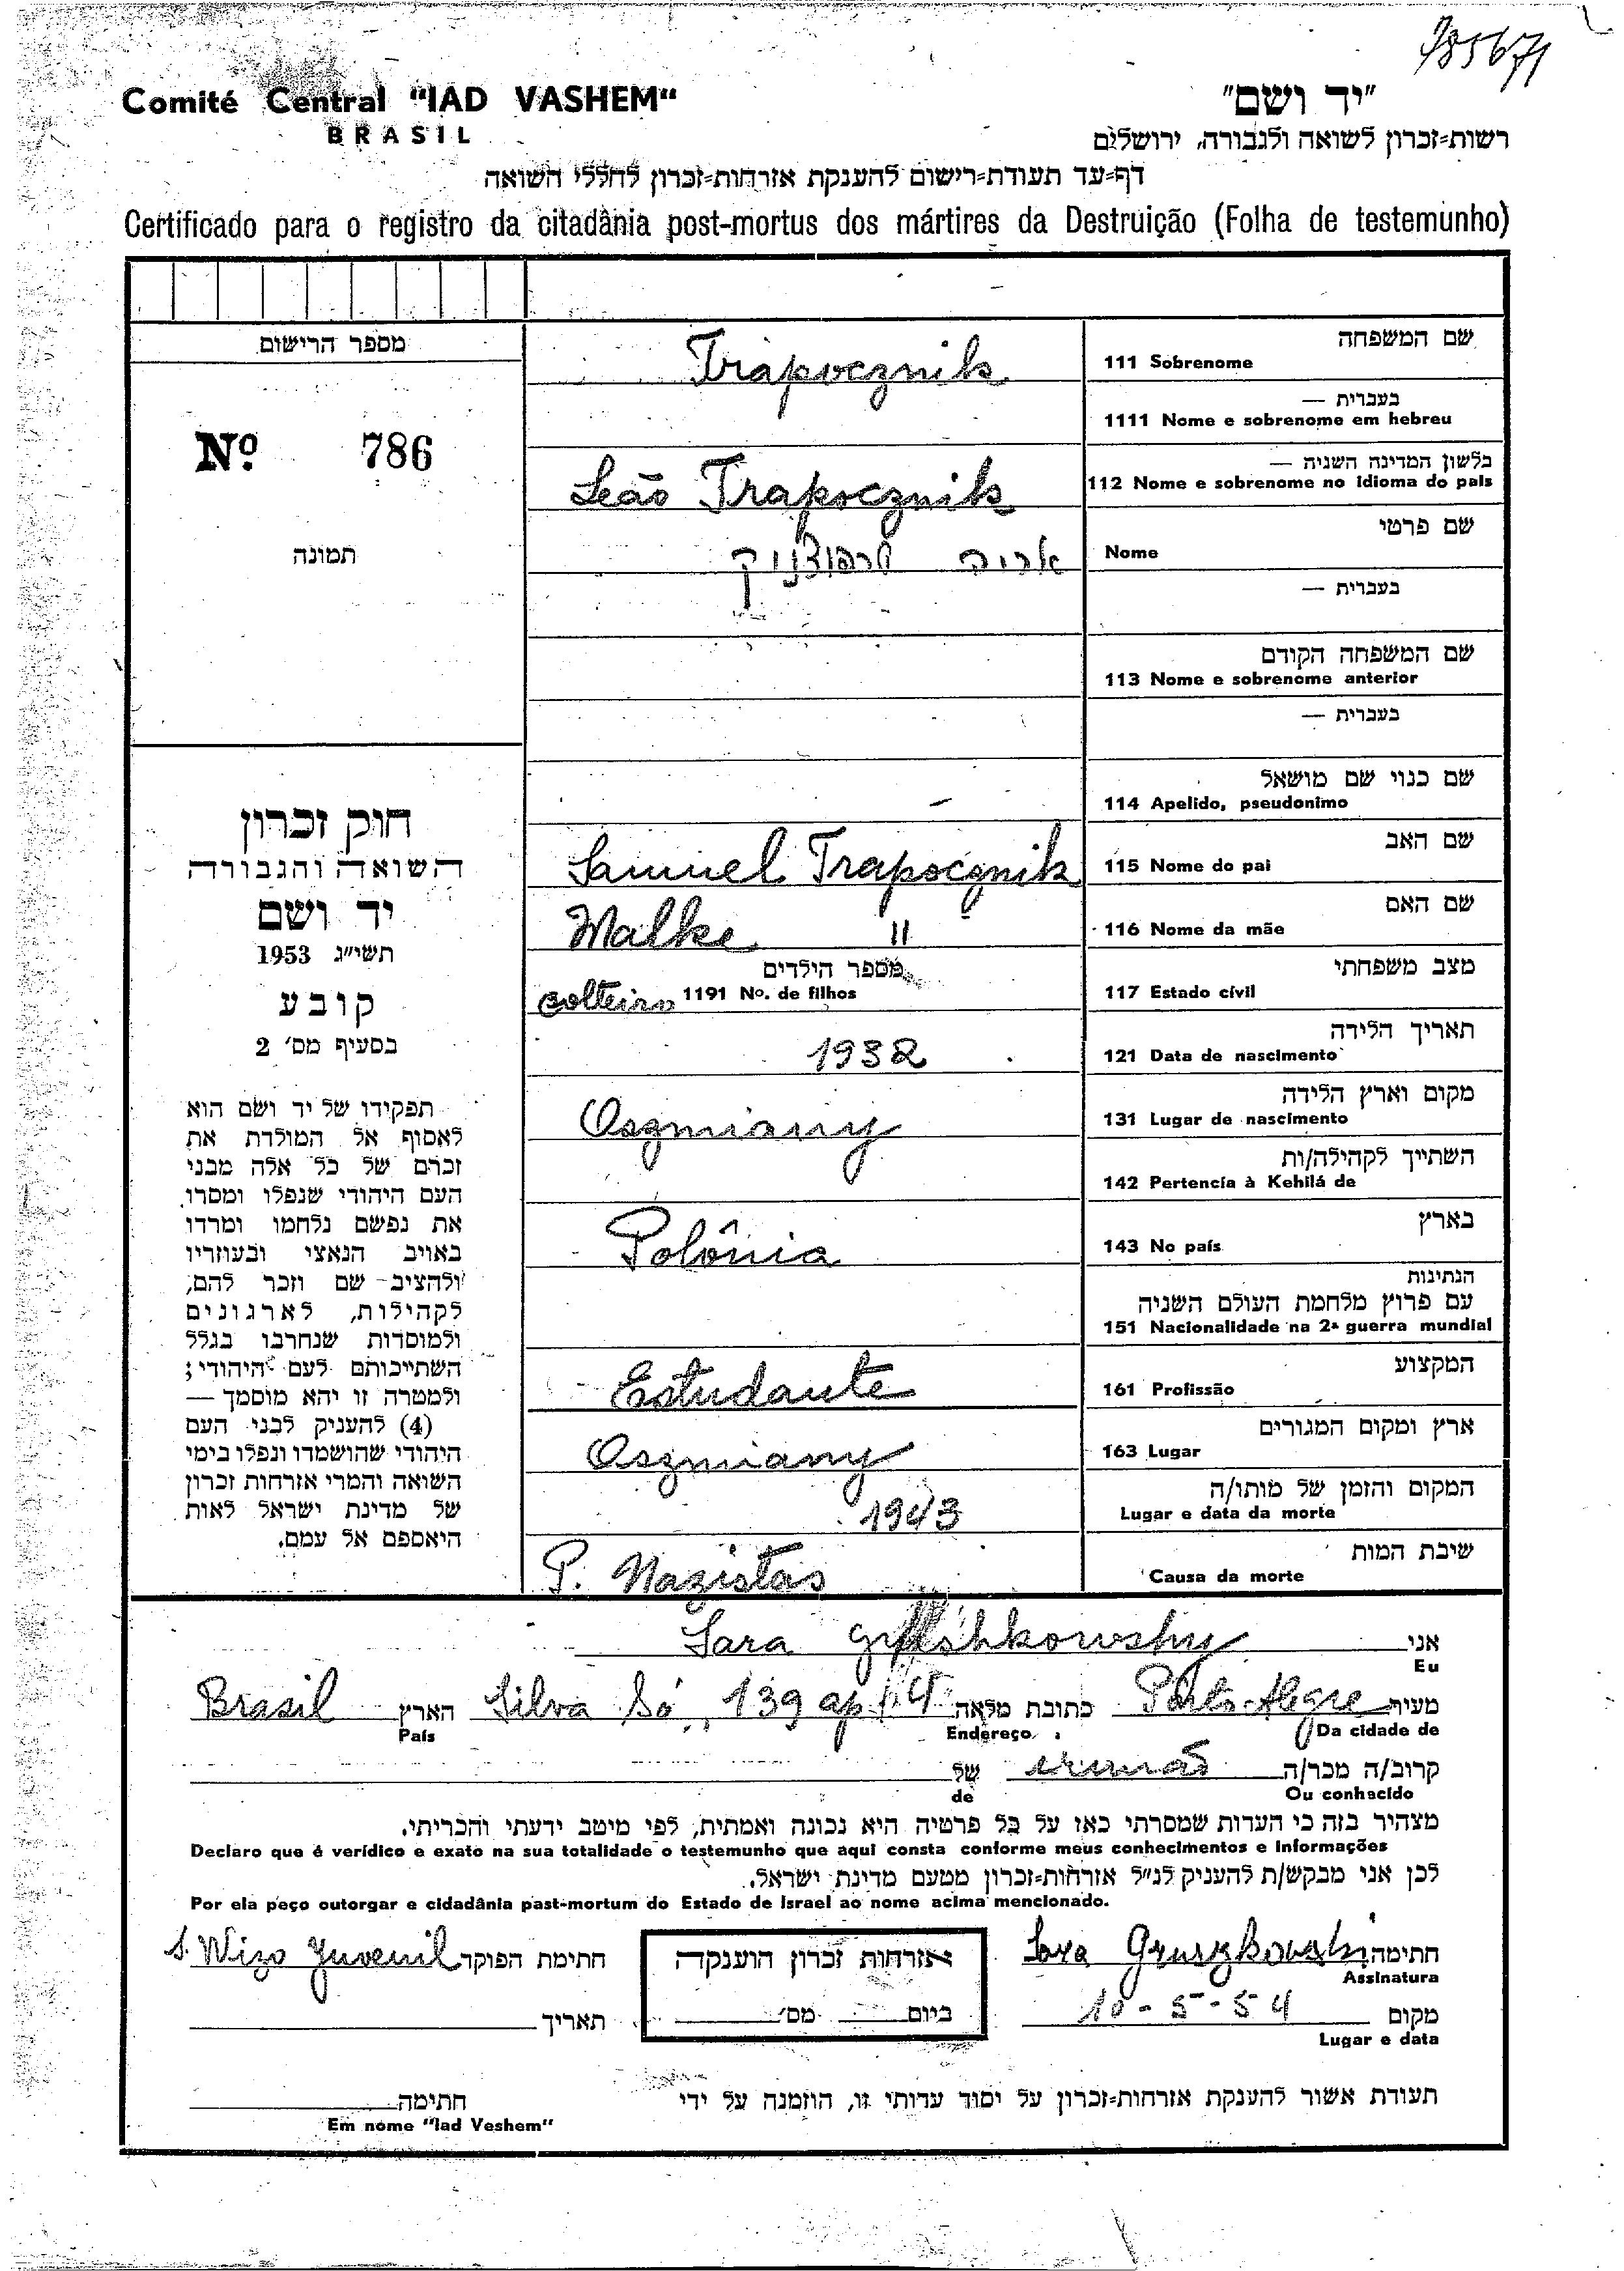 985671
Comité Central "IAD VASHEM"
BRASIL
"יד ושם"
רשות-זכרון לשואה ולגבורה, ירושלים
דף-עד תעודת-רישום להענקת אזרחות-זכרון לחללי השואה
Certificado para o registro da citadânia post-mortus dos mártires da Destruição (Folha de testemunho)
מספר הרישום
Nº. 786
תמונה
חוק זכרון
השואה והגבורה
יד ושם
תשי"ג 1953
קובע
בסעיף מס' 2
תפקידו של יד ושם הוא
לאסוף אל המולדת את
זכרם של כל אלה מבני
העם היהודי שנפלו ומסרו
את נפשם נלחמו ומרדו
באויב הנאצי ובעוזריו
ולהציב שם וזכר להם,
לקהילות, לארגונים
ולמוסדות שנחרבו בגלל
השתייכותם לעם היהודי;
ולמטרה זו יהא מוסמך —
(4) להעניק לבני העם
היהודי שהושמדו ונפלו בימי
השואה והמרי אזרחות זכרון
של מדינת ישראל לאות
היאספם אל עמם.
שם המשפחה
111 Sobrenome Trapocznik
בעברית —
1111 Nome e sobrenome em hebreu
בלשון המדינה השניה —
112 Nome e sobrenome no idioma do país Leão Trapocznik
שם פרטי
Nome אריה טרפוצניק
בעברית —
שם המשפחה הקודם
113 Nome e sobrenome anterior
בעברית —
שם כנוי שם מושאל
114 Apelido, pseudonimo —
שם האב
115 Nome do pai Samuel Trapocznik
שם האם
116 Nome da mãe Malke "
מצב משפחתי
117 Estado cívil solteiro
מספר הילדים
1191 Nº. de filhos
תאריך הלידה
121 Data de nascimento 1932
מקום וארץ הלידה
131 Lugar de nascimento Oszmiany
השתייך לקהילה/ות
142 Pertencía à Kehilá de
בארץ
143 No país Polônia
הנתינות
עם פרוץ מלחמת העולם השניה
151 Nacionalidade na 2ª guerra mundial
המקצוע
161 Profissão Estudante
ארץ ומקום המגורים
163 Lugar Oszmiany
המקום והזמן של מותו/ה
Lugar e data da morte 1943
שיבת המות
Causa da morte P. Nazistas
אני Sara
Eu
מעיר Porto Alegre כתובת מלאה Silva Só, 139 ap 4 הארץ Brasil
Da cidade de Endereço País
קרוב/ה מכר/ה irmão של
Ou conhecido de
מצהיר בזה כי העדות שמסרתי כאן על כל פרטיה היא נכונה ואמתית, לפי מיטב ידעתי והכרתי.
Declaro que é verídico e exato na sua totalidade o testemunho que aqui consta conforme meus conhecimentos e informações
לכן אני מבקש/ת להעניק לנ"ל אזרחות-זכרון מטעם מדינת ישראל.
Por ela peço outorgar e cidadânia past-mortum do Estado de Israel ao nome acima mencionado.
חתימה Sara Gruszkowski
Assinatura
אזרחות זכרון הוענקה
ביום מס'
חתימת הפוקד S. Wizo Juvenil
מקום 10-5-54
Lugar e data
תאריך
תעודת אשור להענקת אזרחות-זכרון על יסוד עדותי זו, הוזמנה על ידי
חתימה
Em nome "Iad Veshem"